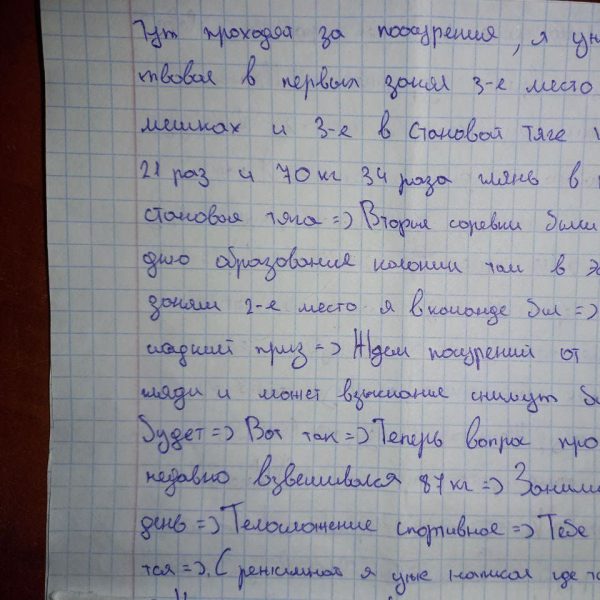 Тут проходят за пооазрения, я уч
твовал в первых занял 3-е место
мешках и 3-е в становой тяге
21 раз и 70 кг 34 раза глянь в
становая тяга => Вторые соревни были
дню образования колонии там в
заняли 2-е место я в команде был =>
сладкий приз => Ждем поозрений от
гляди и может взыскание снимут
будет => Вот так => Теперь вопрос про
недавно взвешивался 87 кг => Занима
день => Телосложение спортивное => Тебе
тся =>. С режимной я уже написал где